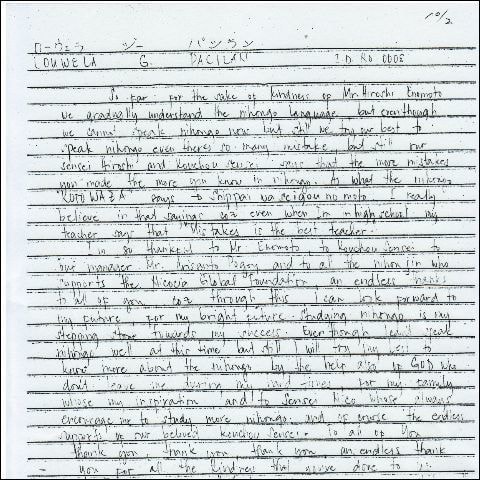 10/2
ローウェラ ジー パシラン
LOUWELA G. PACILAN I.D. No 0005
So far for the sake of kindness of Mr. Hiroshi Enomoto
we gradually understand the nihongo language but eventhough
we cannot speak nihongo now but still we try our best to
speak nihongo even theres so many mistake but still our
sensei hiroshi and kouchou sensei says that the more mistakes
you made the more you know in nihongo. to what the nihongo
KOTOWAZA says to shippai wa seigou no moto I really
believe in that sayings coz even when Im in high school my
teacher says that Mistakes is the best teacher.
I'm so thankful to Mr Enomoto to Kouchou Sensei to
our manager Mr. and to all the nihonjin who
supports the Global Foundation an endless thanks
to all of you coz through this I can look forward to
my future for my bright future. Studying nihongo is my
stepping stone towards my success. Even though I can't speak
nihongo well at this time but still I will try my best to
know more about the nihongo by the help also of GOD who
don't leave me during my hard times for my family
whose my inspiration and to Sensei Nico whose always
encourage me to study more nihongo. and of course the endless
supports of our beloved kouchou sensei. To all of you
thank you, thank you, thank you an endless thank
you for all the kindness that you've done to us.